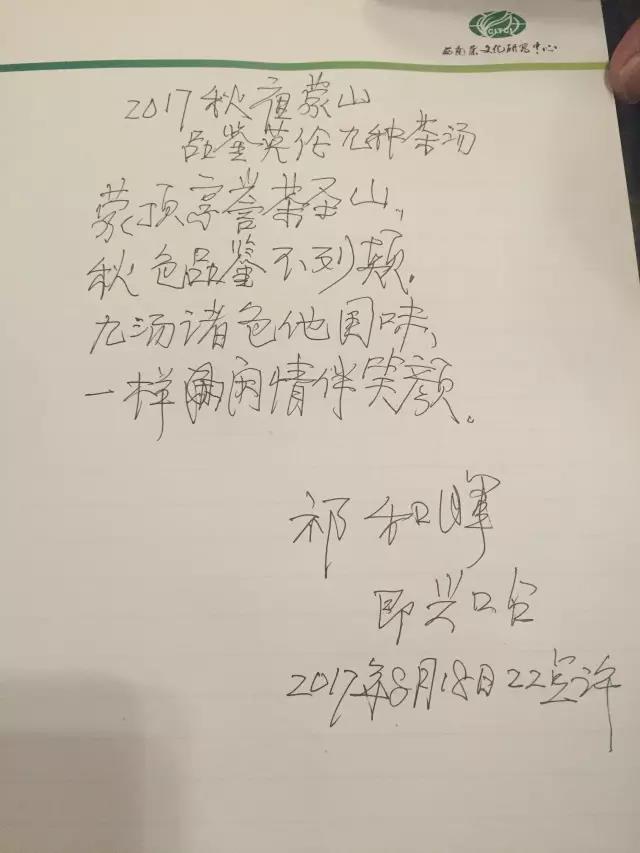 CLTC
西南茶文化研究中心
2017秋夜蒙山
品鉴英伦九种茶汤
蒙顶享誉茶圣山,
秋色品鉴不列颠.
九汤诸色他国味,
一样闲情伴笑颜。
祁和晖
即兴口占
2017年8月18日22点许